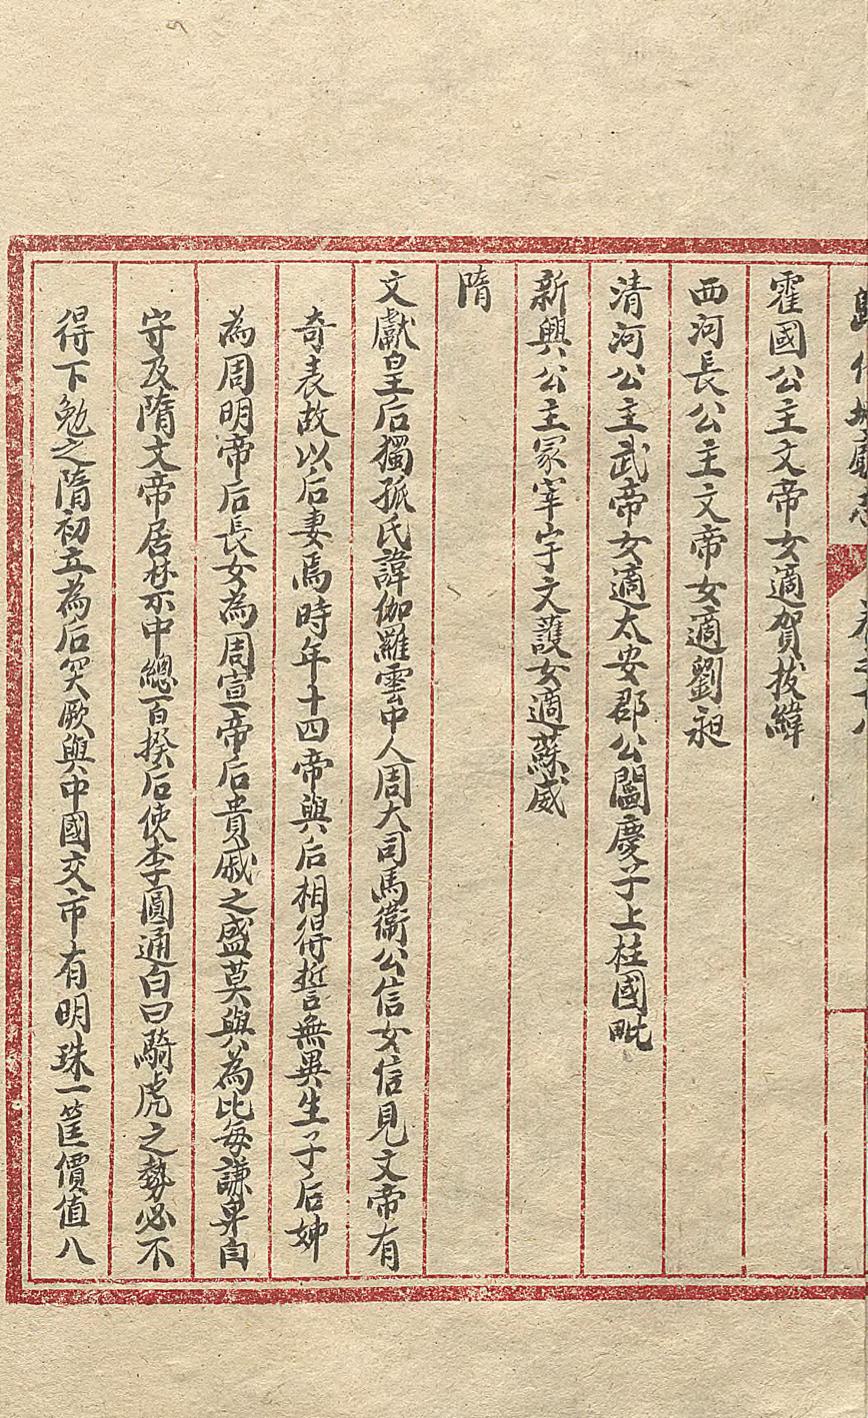 霍國公主文帝女適賀拔緯
西河長公主文帝女適劉昶
清河公主武帝女適太安郡公閻慶子上柱國毗
新興公主冢宰宇文護女適蘇威
隋
文獻皇后獨孤氏諱伽羅雲中人周大司馬衞公信女信見文帝有
奇表故以后妻焉時年十四帝與后相得誓無異生子后姊
為周明帝后長女為周宣帝后貴戚之盛莫與為比每謙卑自
守及隋文帝居禁中總百揆后使李圓通白曰騎虎之勢必不
得下勉之隋初立為后突厥與中國交市有明珠一筐價值八